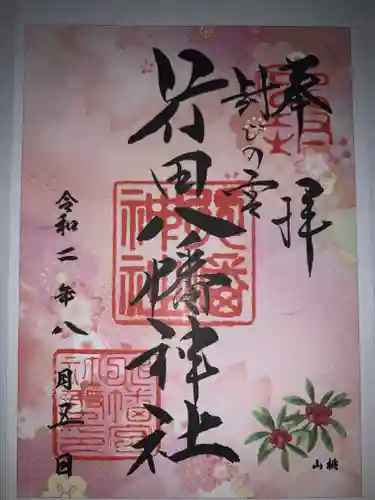 奉拝
封じの宮
行田八幡神社
令和二年八月五日
山桃